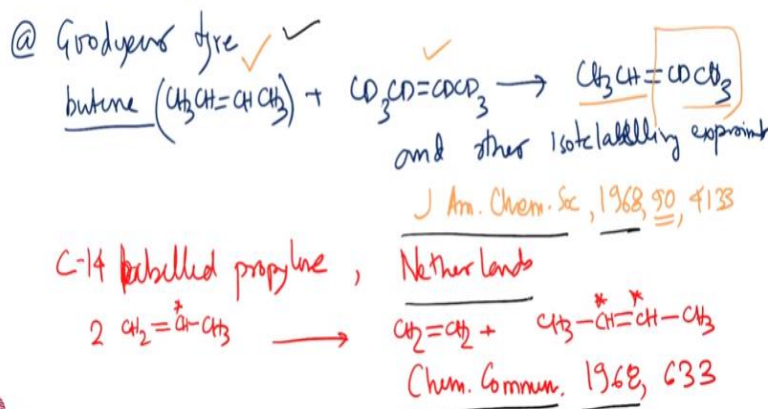 @ Goodyear tyre
butene (CH3CH=CHCH3) + CD3CD=CDCD3 → CH3CH=CDCD3
and other isotelabelling expriment
J Am. Chem. Soc, 1968, 90, 4133
C-14 labelled propylene, Netherlands
2 CH2=*CH-CH3 → CH2=CH2 + CH3-*CH=*CH-CH3
Chem. Commun. 1968, 633